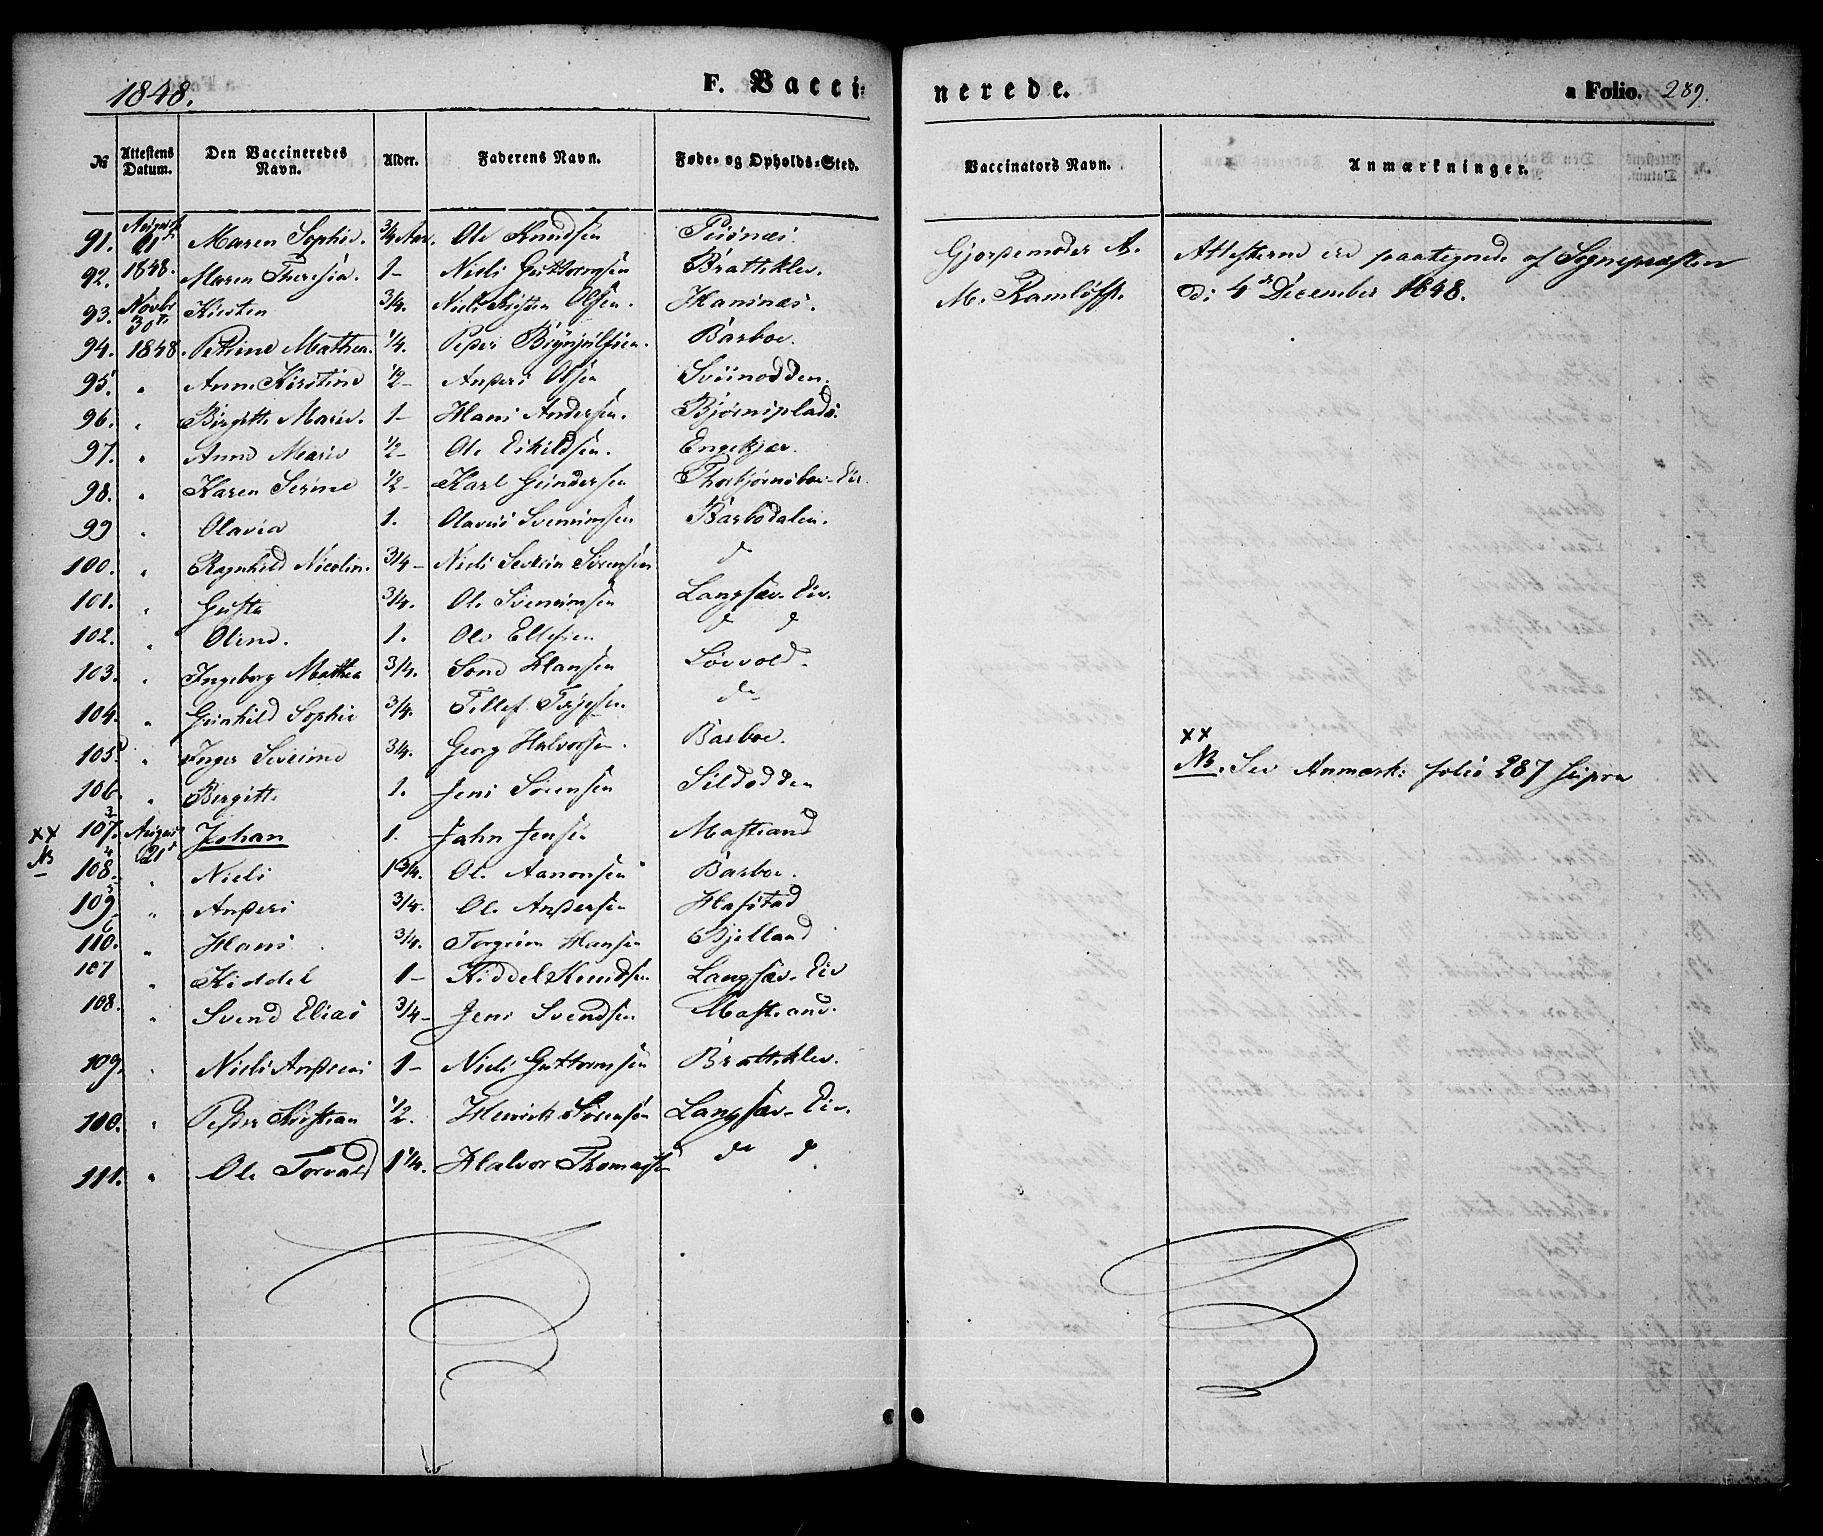 1848. F. Vacci- nerede. a Folio. 289.
№ Attestens Datum. Den Vaccineredes Navn. Alder. Faderens Navn. Føde- og Opholds-Sted. Vaccinators Navn. Anmærkninger.
91. August 21d Maren Sophie. 3/4 Aar. Ole Knudsen Gjordemoder A. Attesterne ere paategnede af Sognepræsten
92. 1848. Maren Theresia. 1- Niels Guttormsen Bratteklev. M. Ramløfft. d: 4de December 1848.
93. Novbr 30te Kirsten 3/4. Niels Olsen. Hansnæs.
94. 1848. Petrine Mathea. 1/4. Peder Brynjulfsen. Barboe.
95. " Anne Kirstine 1/2- Anders Olsen Sviinodden.
96. " Birgitte Marie. 1- Hans Andersen. Bjørnsplads.
97. " Anne Marie 1/2- Ole Eskildsen. Engekjær.
98. " Karen Serine 1/2- Karl Gundersen Thorbjørnsboe-Eie.
99 " Olavia 1. Olavus Svenumsen Barbodalen.
100. " Ragnhild Nicolin. 3/4- Niels Severin Sørensen d
101. " Gusta 3/4. Ole Svenumsen Langsæv. Eie.
102. " Oline. 1. Ole Ellefsen d d
103. " Ingeborg Mathea 3/4. Hansen Løvvold.
104. " Gunhild Sophie 3/4. Tellef Terjesen. do
105 " Inger Severine 3/4. Georg Halvorsen. Barboe.
xx
106. " Bergitte 1. Jens Sørensen Sildodden NB. See Anmærk: folio 287 supra
xx NB 107. 3 August 21d Johan 1. Jahn Jensen Mastrand
108. 4 " Niels 1 3/4. Ole Aanonsen Barboe.
109 5 " Anders 3/4. Ole Andersen Hafstad
110. 6 " Hans 3/4. Torgrim Hansen Bjelland
107 " Kiddel 1- Kiddel Knudsen Langsæv. Eie
108. " Svend Elias 3/4- Jens Svendsen Mastrand.
109. " Niels Andreas 1- Niels Guttormsen Bratteklev.
110. " Peder Kristian 1/2. Henrik Sørensen Langsæv. Eie.
111. " Ole Torvald 1 1/4. Halvor Thomassen do d